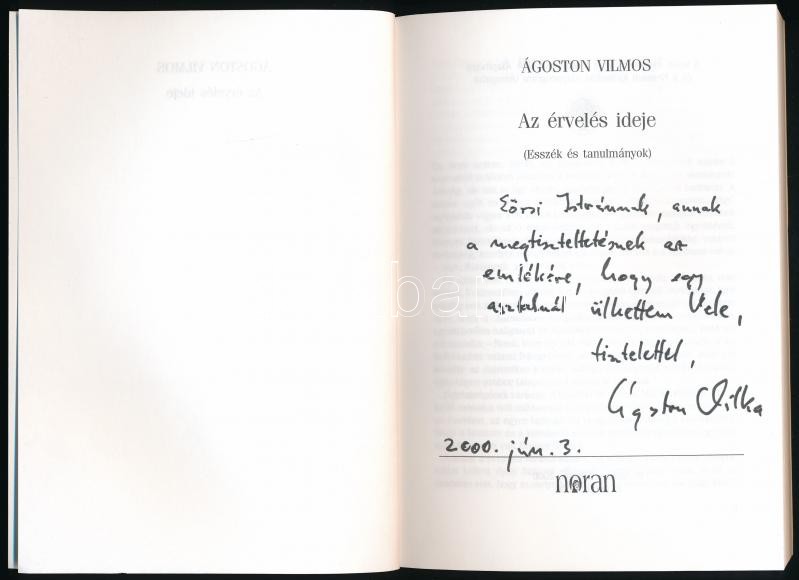 ÁGOSTON VILMOS
Az érvelés ideje
(Esszék és tanulmányok)
Eörsi Istvánnak, annak
a megtiszteltetésnek az
emlékére, hogy egy
asztalnál ülhettem Vele,
tisztelettel,
Ágoston Vilka
2000. jún. 3.
noran